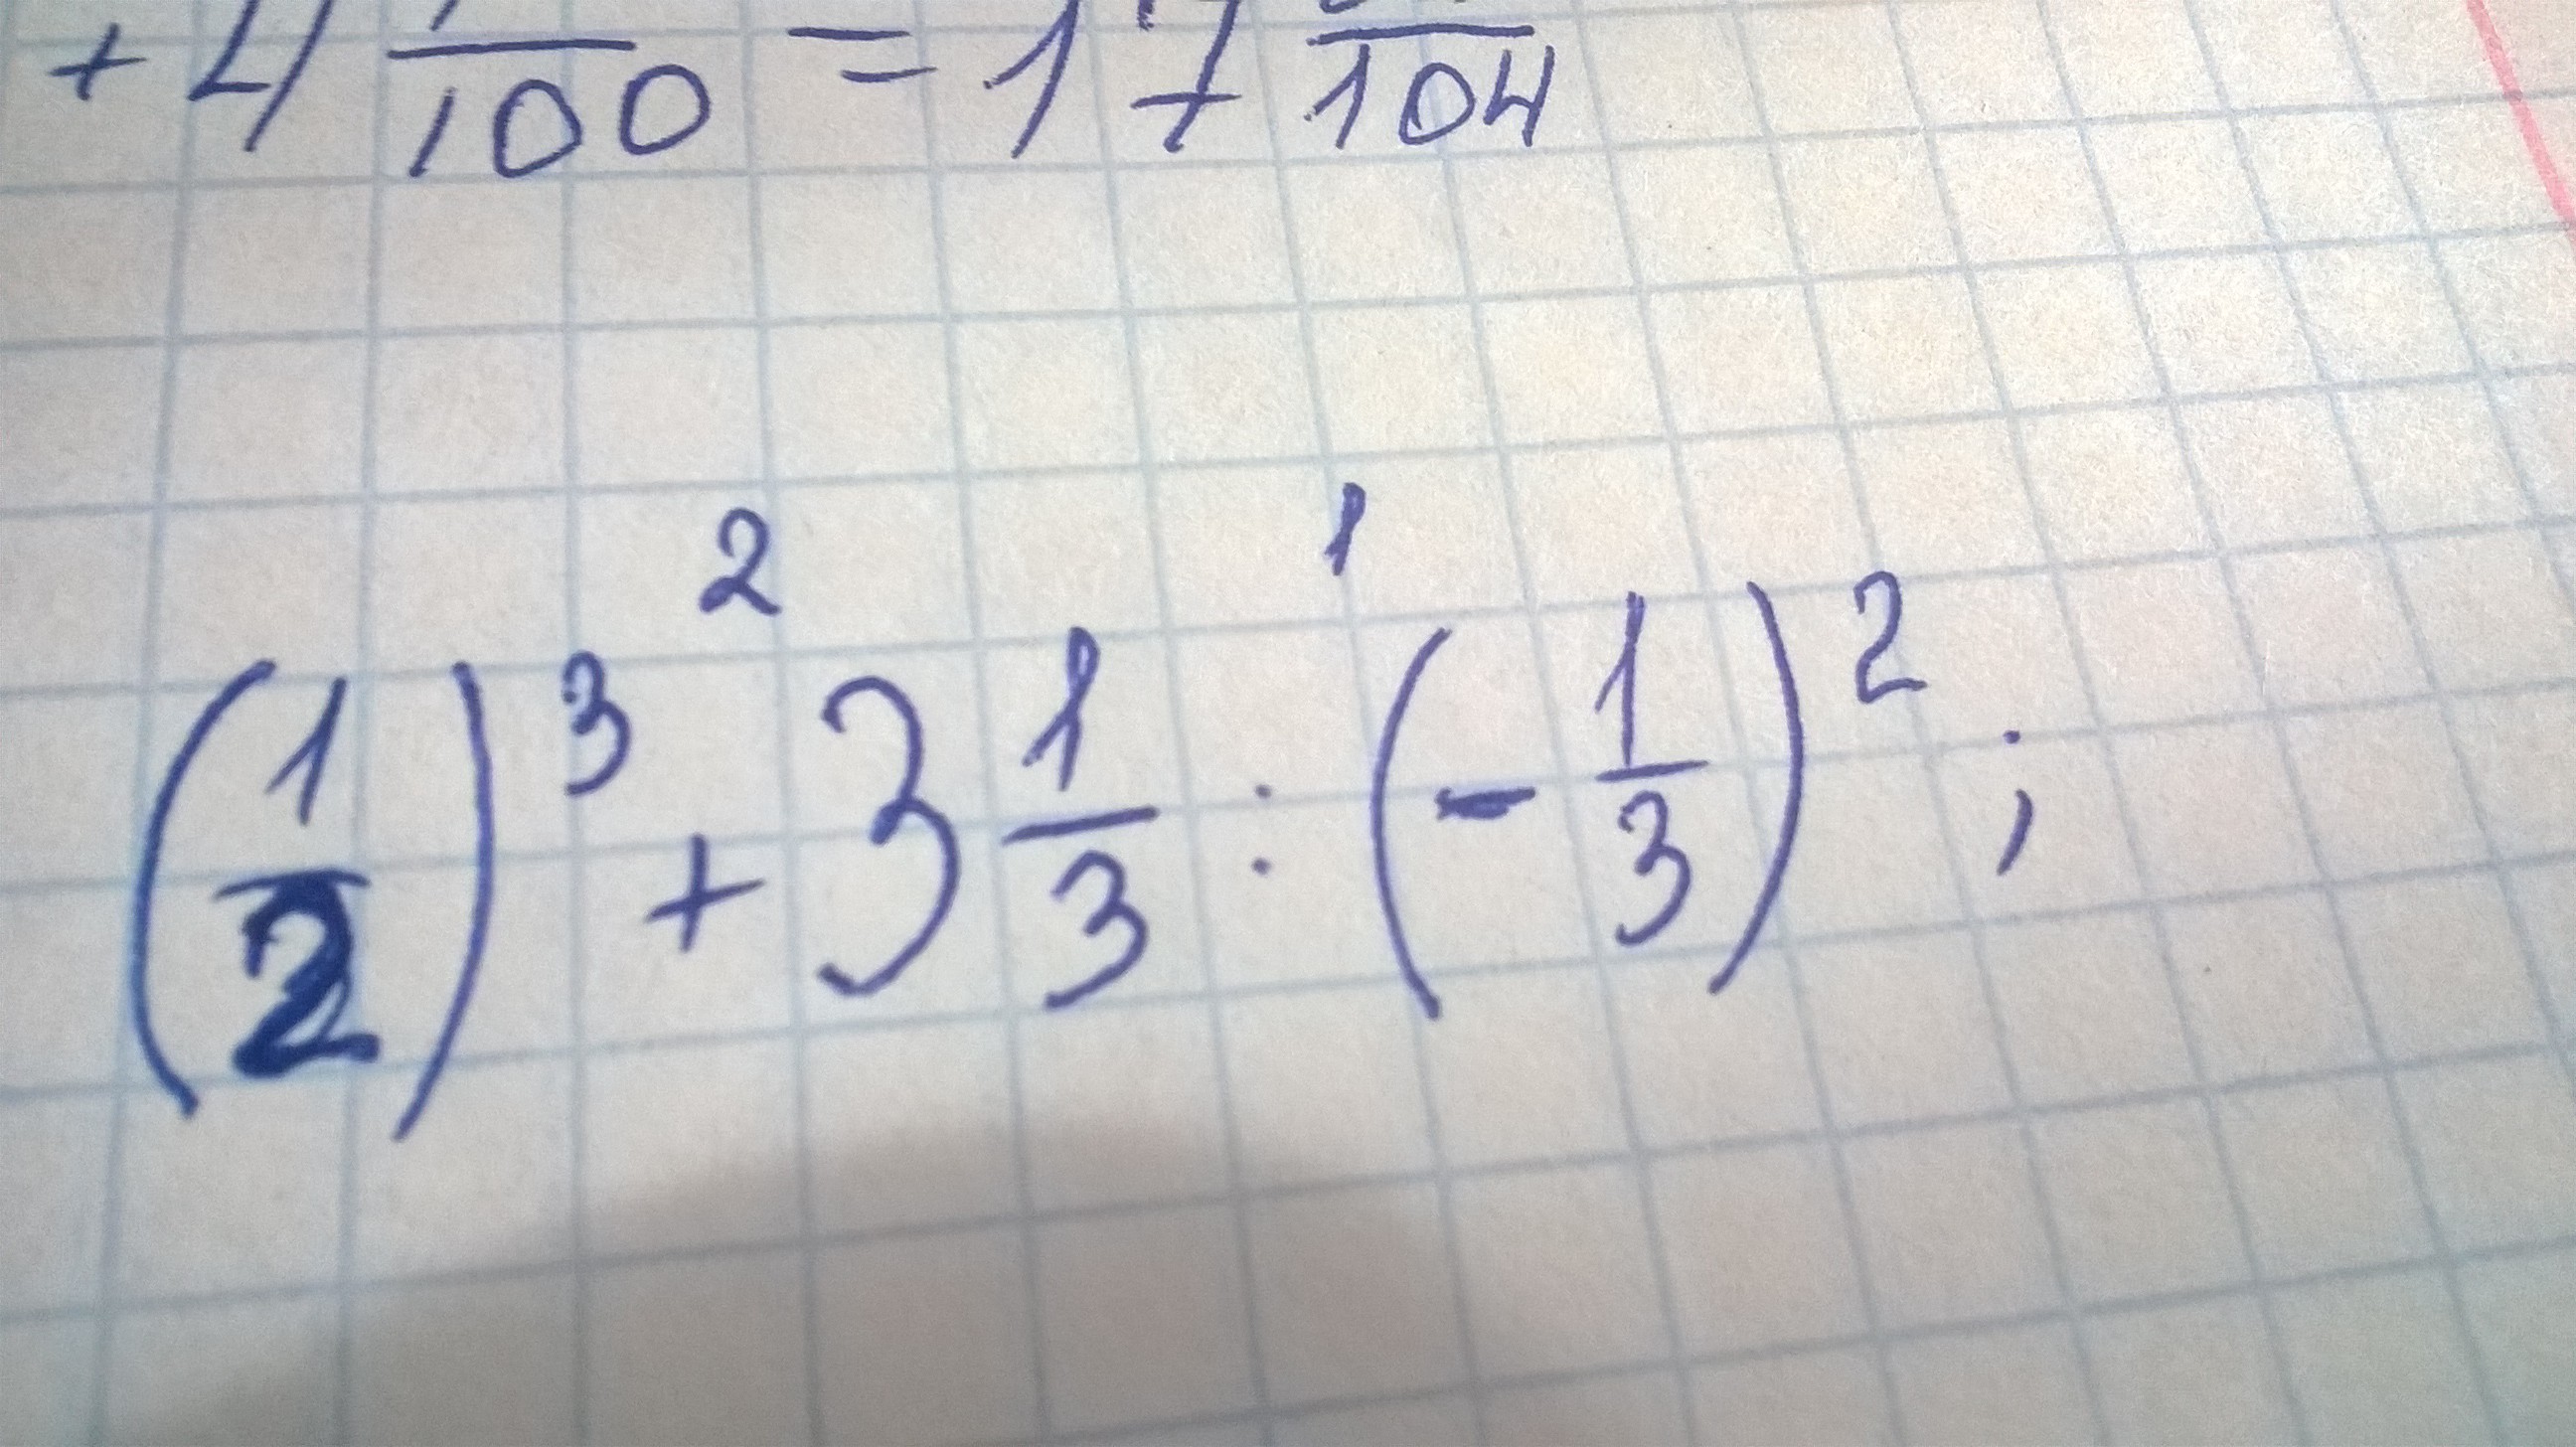 + 4 /100 = 17 /104
2 1
(1/2)³ + 3 1/3 : (- 1/3)² ;